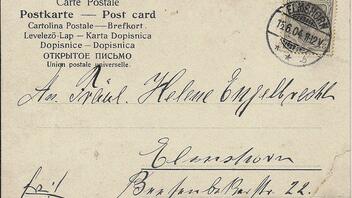 Carte Postale
Postkarte — Post card
Cartolina Postale — Brefkort
Levelező-Lap — Karta Dopisnica
Dopisnice — Dopisnica
ОТКРЫТОЕ ПИСЬМО
Union postale universelle.
ELMSHORN
15.6.04.
An Fräul. Helene Engelbrecht
Elmshorn
22.
frei!